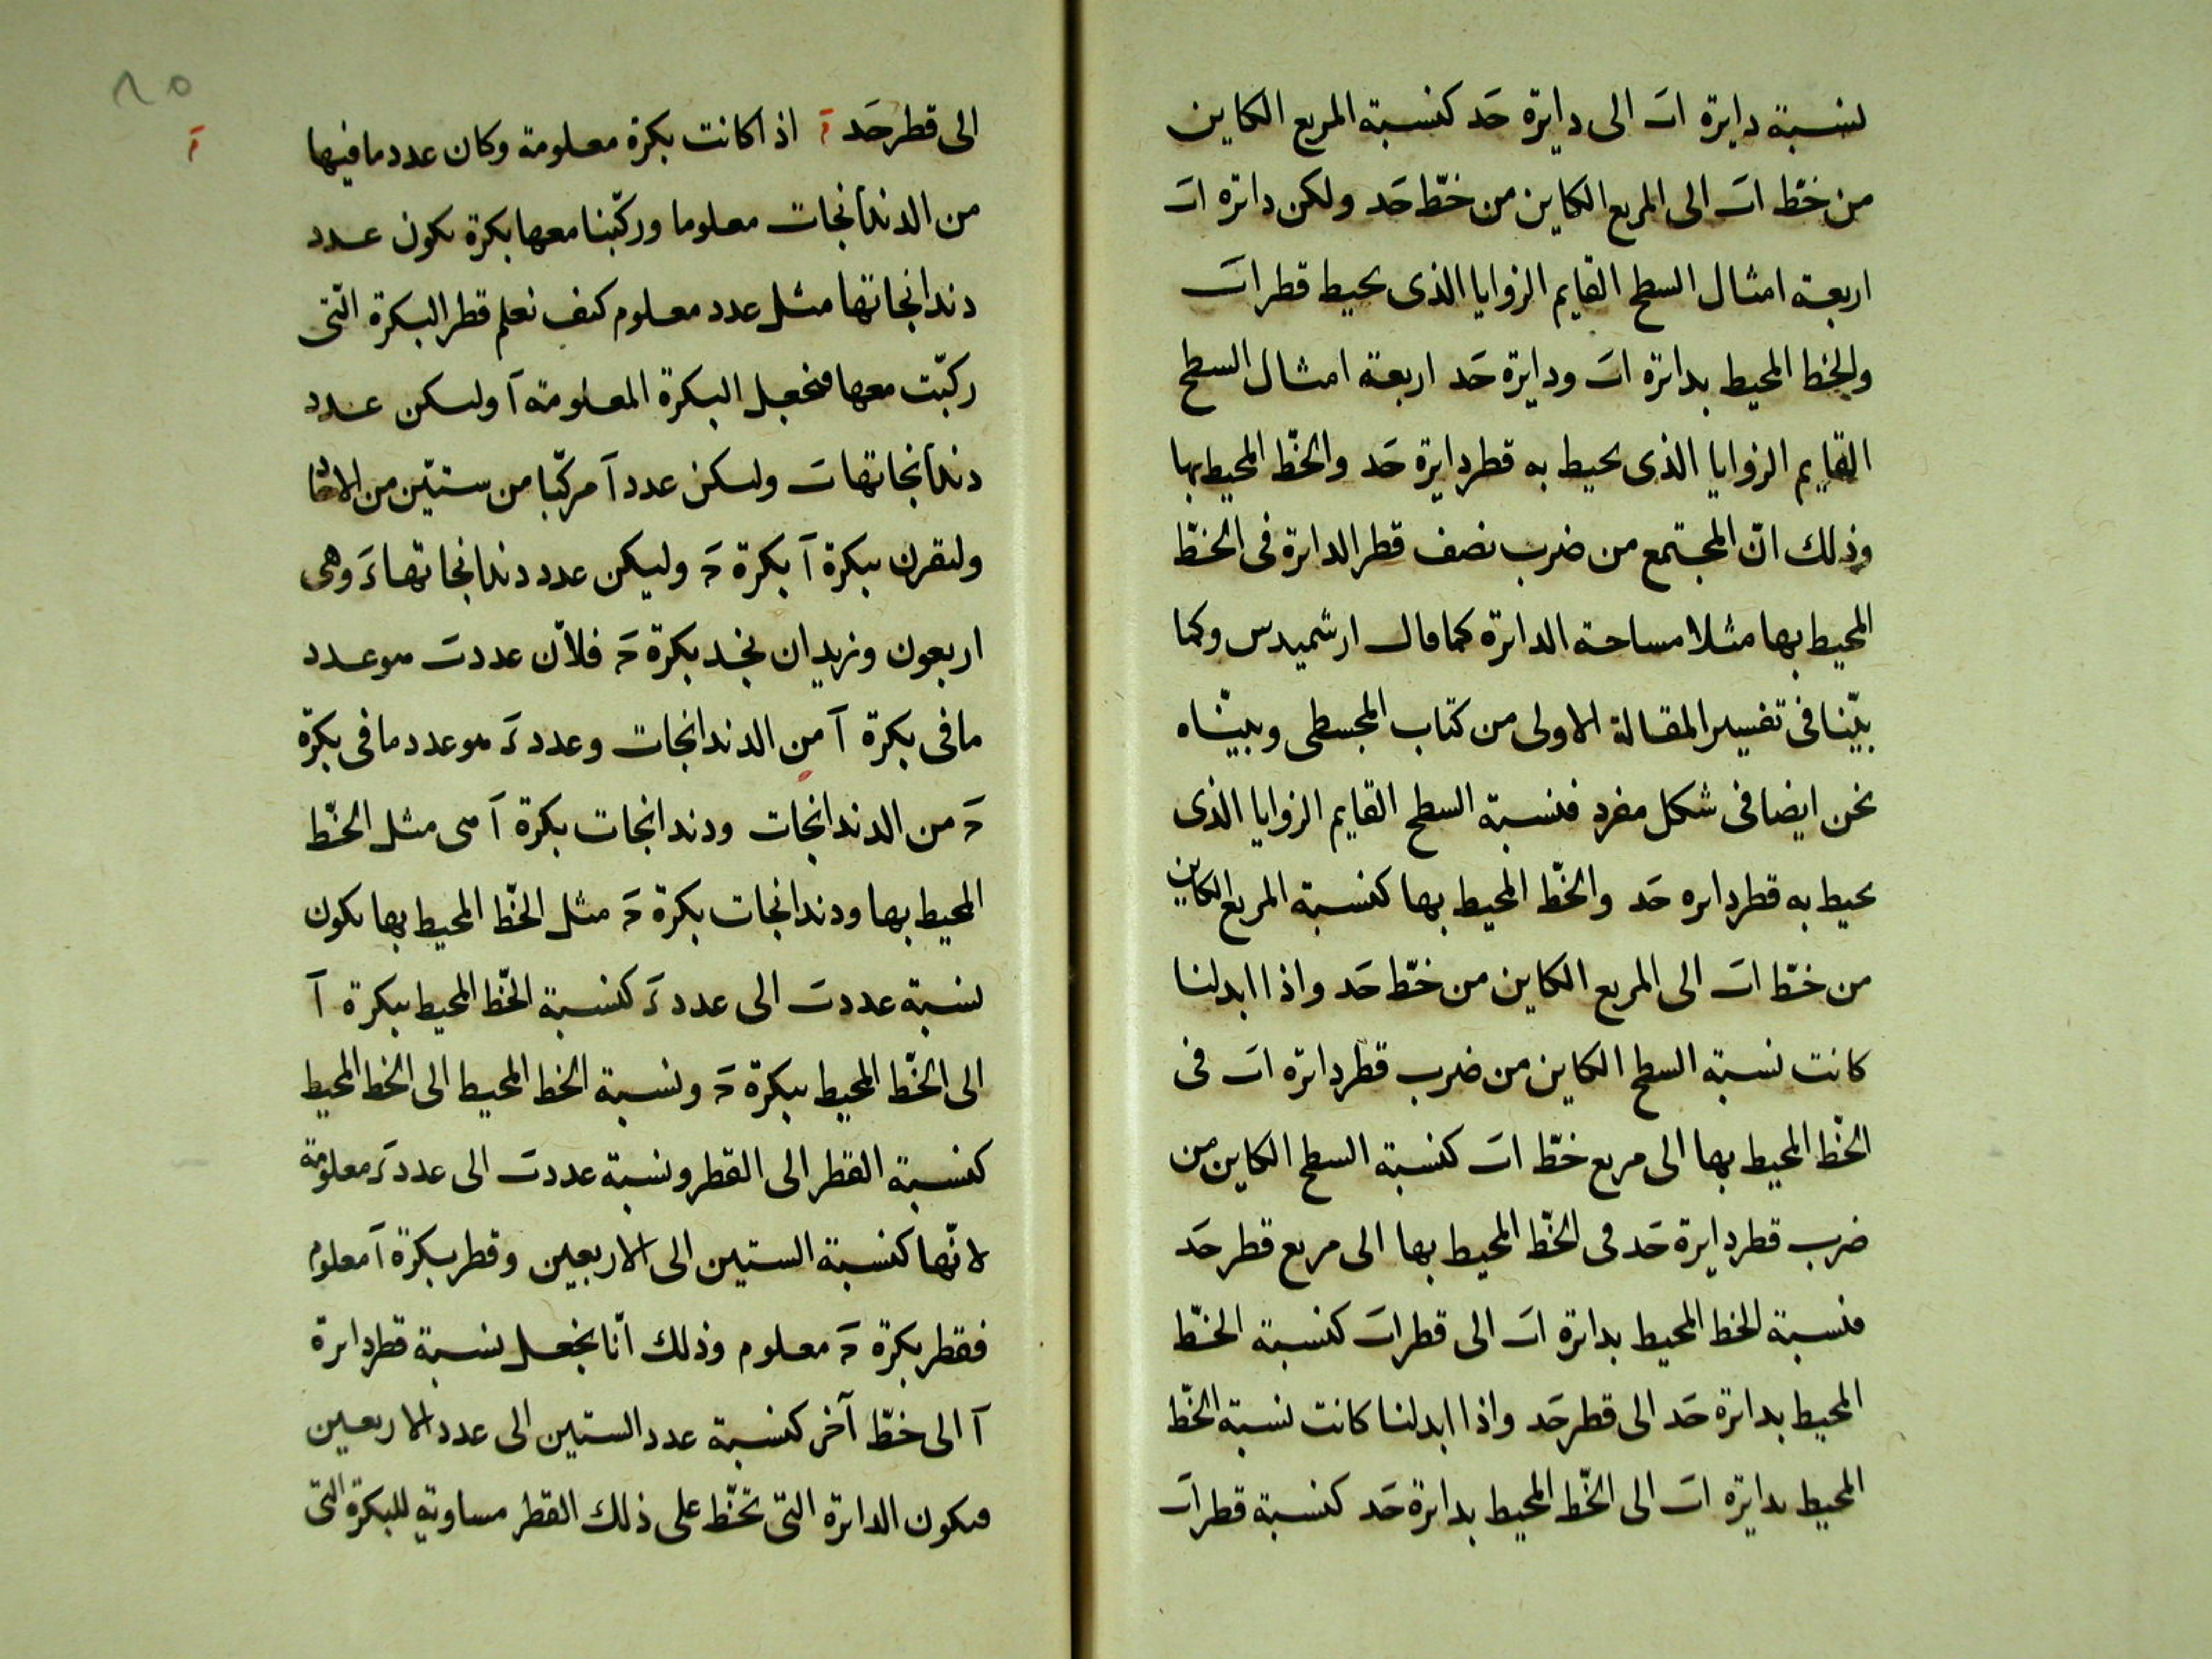 نسبة دايرة اب الى دايرة حد كنسبة المربع الكاين
من خطّ اب الى المربع الكاين من خطّ حد ولكن دائرة اب
اربعة امثال السطح القايم الزوايا الذى يحيط قطر اب
والخط المحيط بدائرة اب ودايرة حد اربعة امثال السطح
القايم الزوايا الذى يحيط به قطر دايرة حد والخطّ المحيط بها
وذلك انّ المجتمع من ضرب نصف قطر الدائرة فى الخطّ
المحيط بها مثلا مساحة الدائرة كما قال ارشميدس وكما
بيّنا فى تفسير المقالة الاولى من كتاب المجسطى وبيّناه
نحن ايضا فى شكل مفرد فنسبة السطح القايم الزوايا الذى
يحيط به قطر دايره حد والخطّ المحيط بها كنسبة المربع الكاين
من خطّ اب الى المربع الكاين من خطّ حد واذا ابدلنا
كانت نسبة السطح الكاين من ضرب قطر دائرة اب فى
الخطّ المحيط بها الى مربع خطّ اب كنسبة السطح الكاين من
ضرب قطر دايرة حد فى الخطّ المحيط بها الى مربع قطر حد
فنسبة الخط المحيط بدائرة اب الى قطر اب كنسبة الخطّ
المحيط بدائرة حد الى قطر حد واذا ابدلنا كانت نسبة الخطّ
المحيط بدايرة اب الى الخطّ المحيط بدائرة حد كنسبة قطر اب
٨٥
آ
الى قطر حد آ اذا كانت بكرة معلومة وكان عدد ما فيها
من الدندانجات معلوما وركّبنا معها بكرة يكون عدد
دندانجاتها مثل عدد معلوم كيف نعلم قطر البكرة الّتى
ركّبت معها فنجعل البكرة المعلومة آ وليكن عدد
دندانجاتها ب وليكن عدد آ مركّبا من ستّين من
وليقرن ببكرة آ بكرة حـ وليكن عدد دندانجاتها د وهى
اربعون ونريد ان نجد بكرة حـ فلانّ عدد ب هو عدد
ما فى بكرة آ من الدندانجات وعدد د هو عدد ما فى بكرة
حـ من الدندانجات ودندانجات بكرة آ هى مثل الخطّ
المحيط بها ودندانجات بكرة حـ مثل الخطّ المحيط بها يكون
نسبة عدد ب الى عدد د كنسبة الخطّ المحيط ببكرة آ
الى الخطّ المحيط ببكرة حـ ونسبة الخط المحيط الى الخط المحيط
كنسبة القطر الى القطر ونسبة عدد ب الى عدد د معلومة
لانّها كنسبة الستين الى الاربعين وقطر بكرة آ معلوم
فقطر بكرة حـ معلوم وذلك انّا نجعل نسبة قطر دايرة
آ الى خطّ آخر كنسبة عدد الستين الى عدد الاربعين
فيكون الدائرة التى تخطّ على ذلك القطر مساوية للبكرة التى